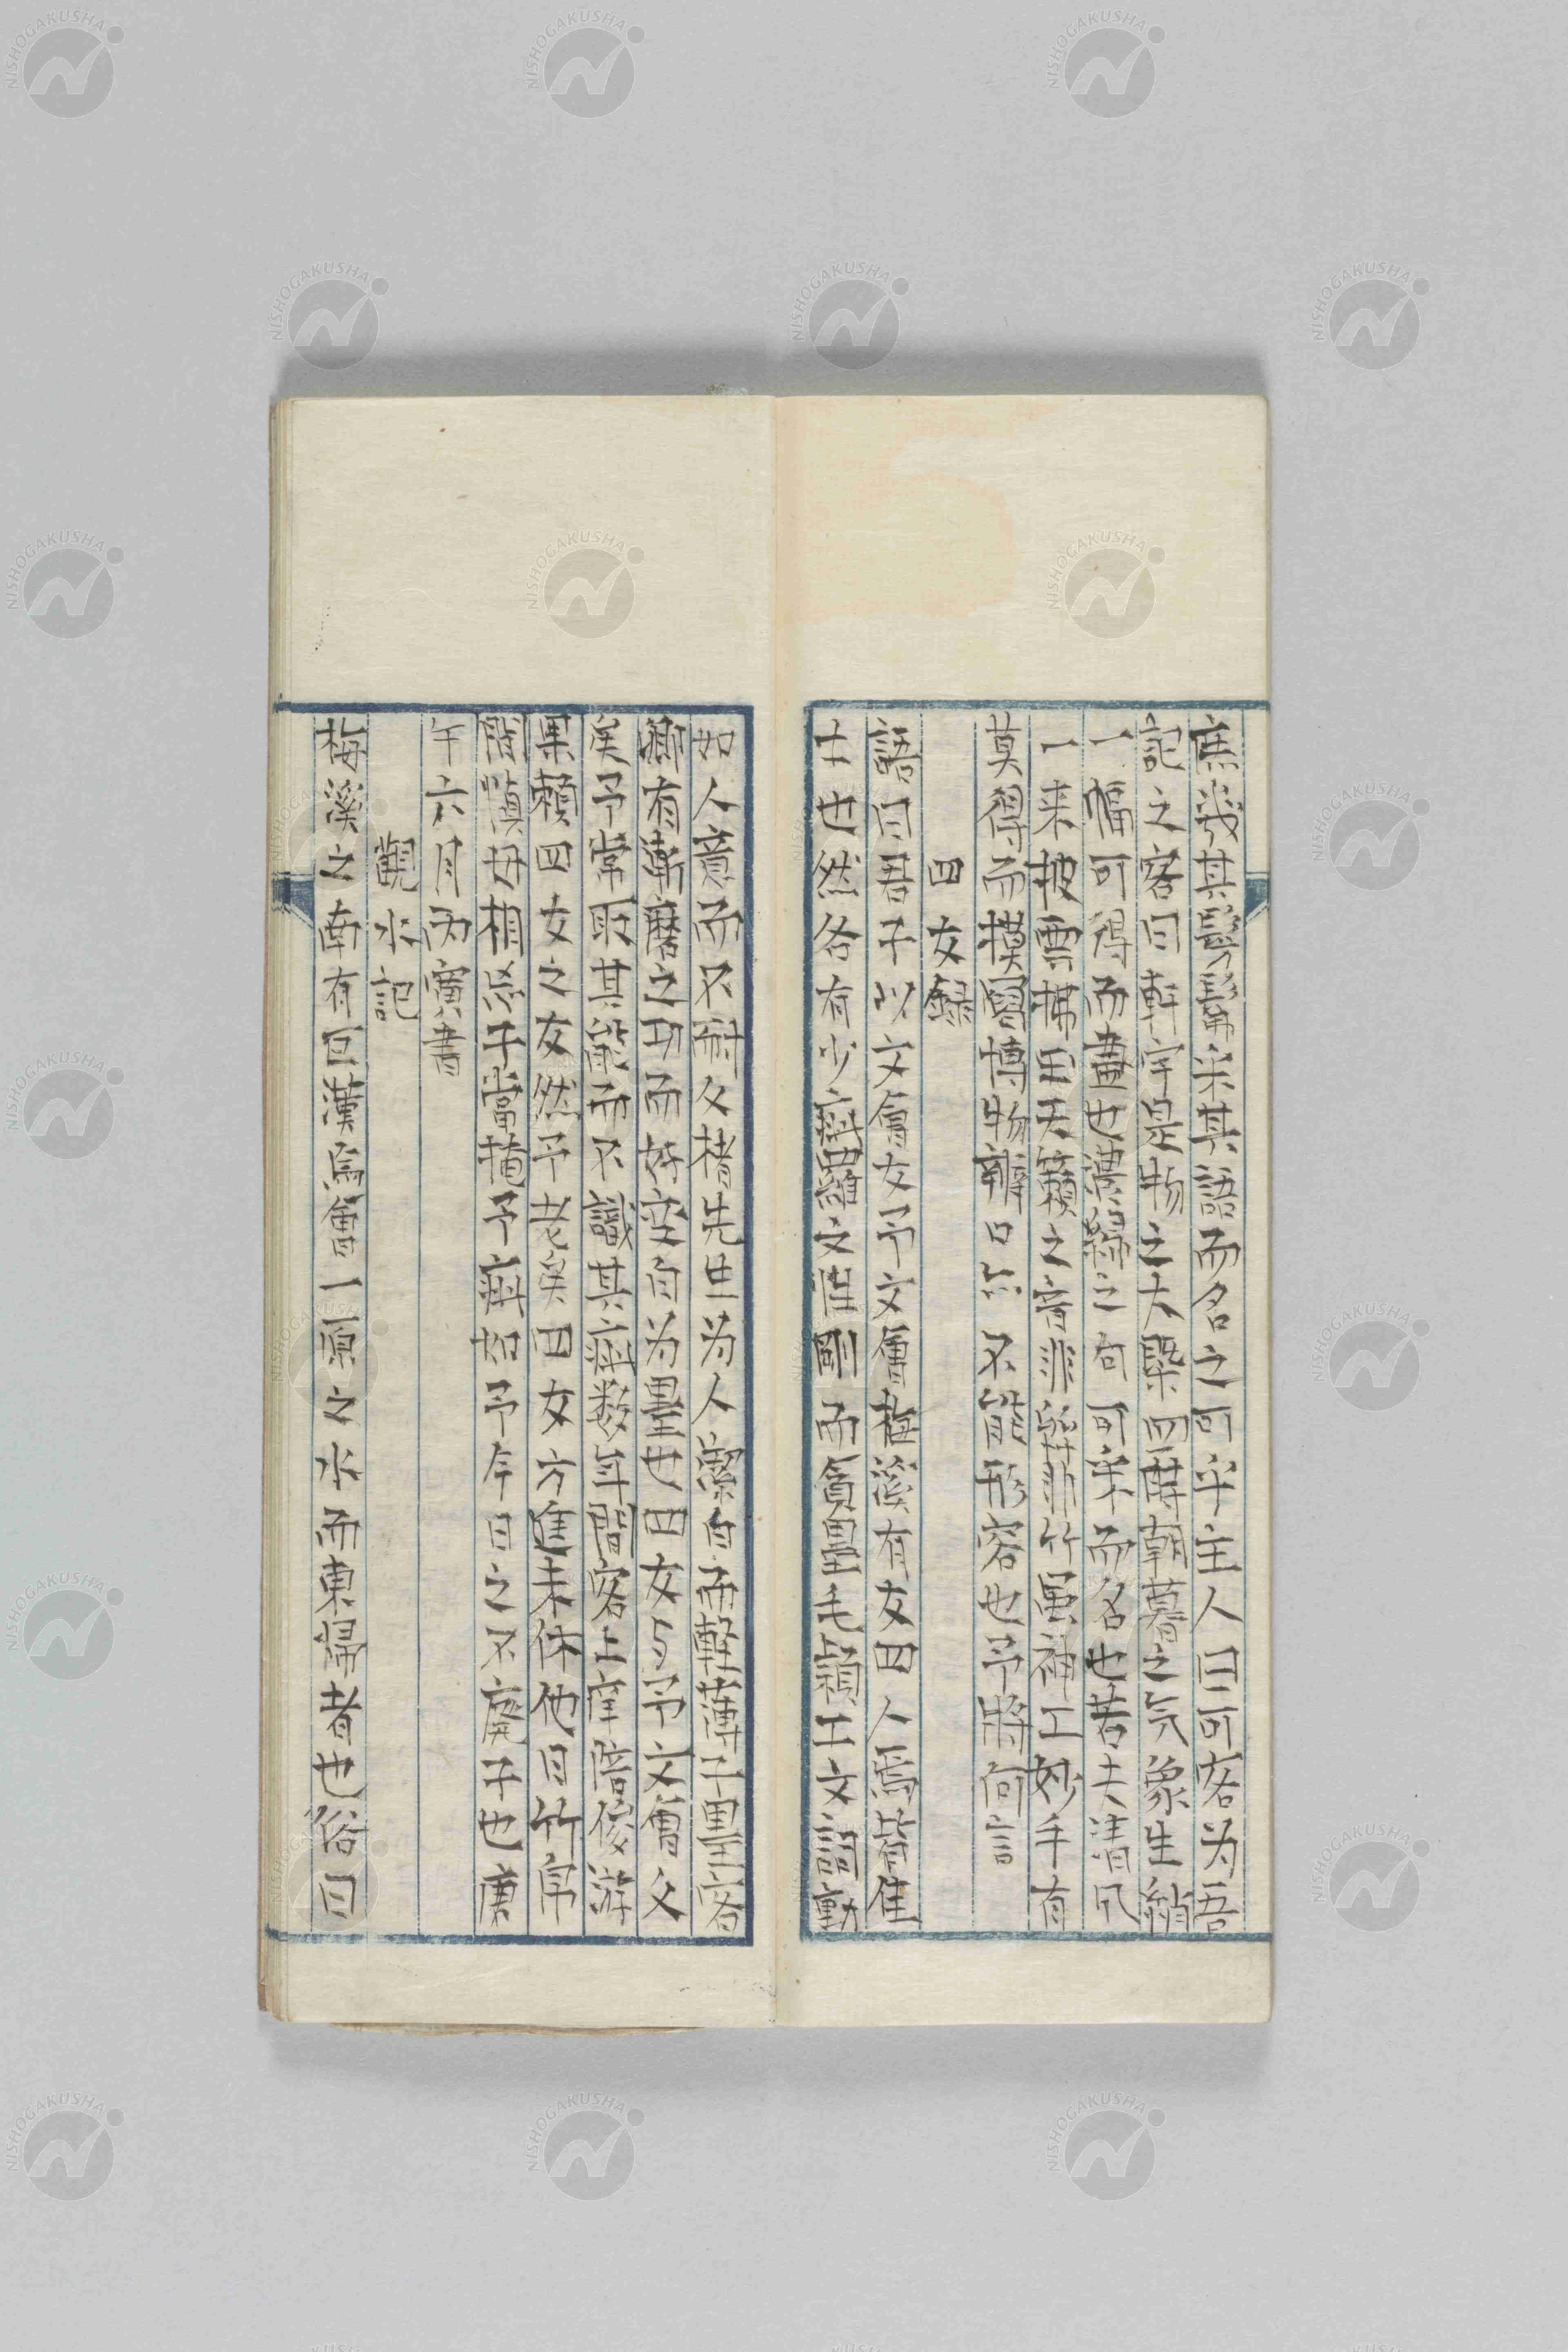 庶幾其髣髴采其語而名之可乎主人曰可客为吾
記之客曰軒宇是物之大槩四時朝暮之気象生綃
一幅可得而畫也濃緑之句可采而名也若夫清风
一来披雲拂玉天籟之音非絲非竹風神工妙手有
莫得而摸寫博物辨口亦不能形容也予將何言
四友録
語曰君子以文會友予文會梅溪有友四人焉皆佳
士也然各有少癖羅文性剛而貪墨毛穎工文詞動
如人意而不耐久楮先生为人潔白而軽薄子墨客
卿有漸磨之功而好空自为墨也四友与予文會久
矣予常取其能而不識其癖数年間客上庠陪俊游
果頼四友之友然予老矣四友方進未休他日竹帛
間慎毋相忘子當掩予癖如予今日之不廃子也庚
午六月丙寅書
觀水記
梅溪之南有巨漢焉會一原之水而東歸者也俗曰
NISHOGAKUSHA